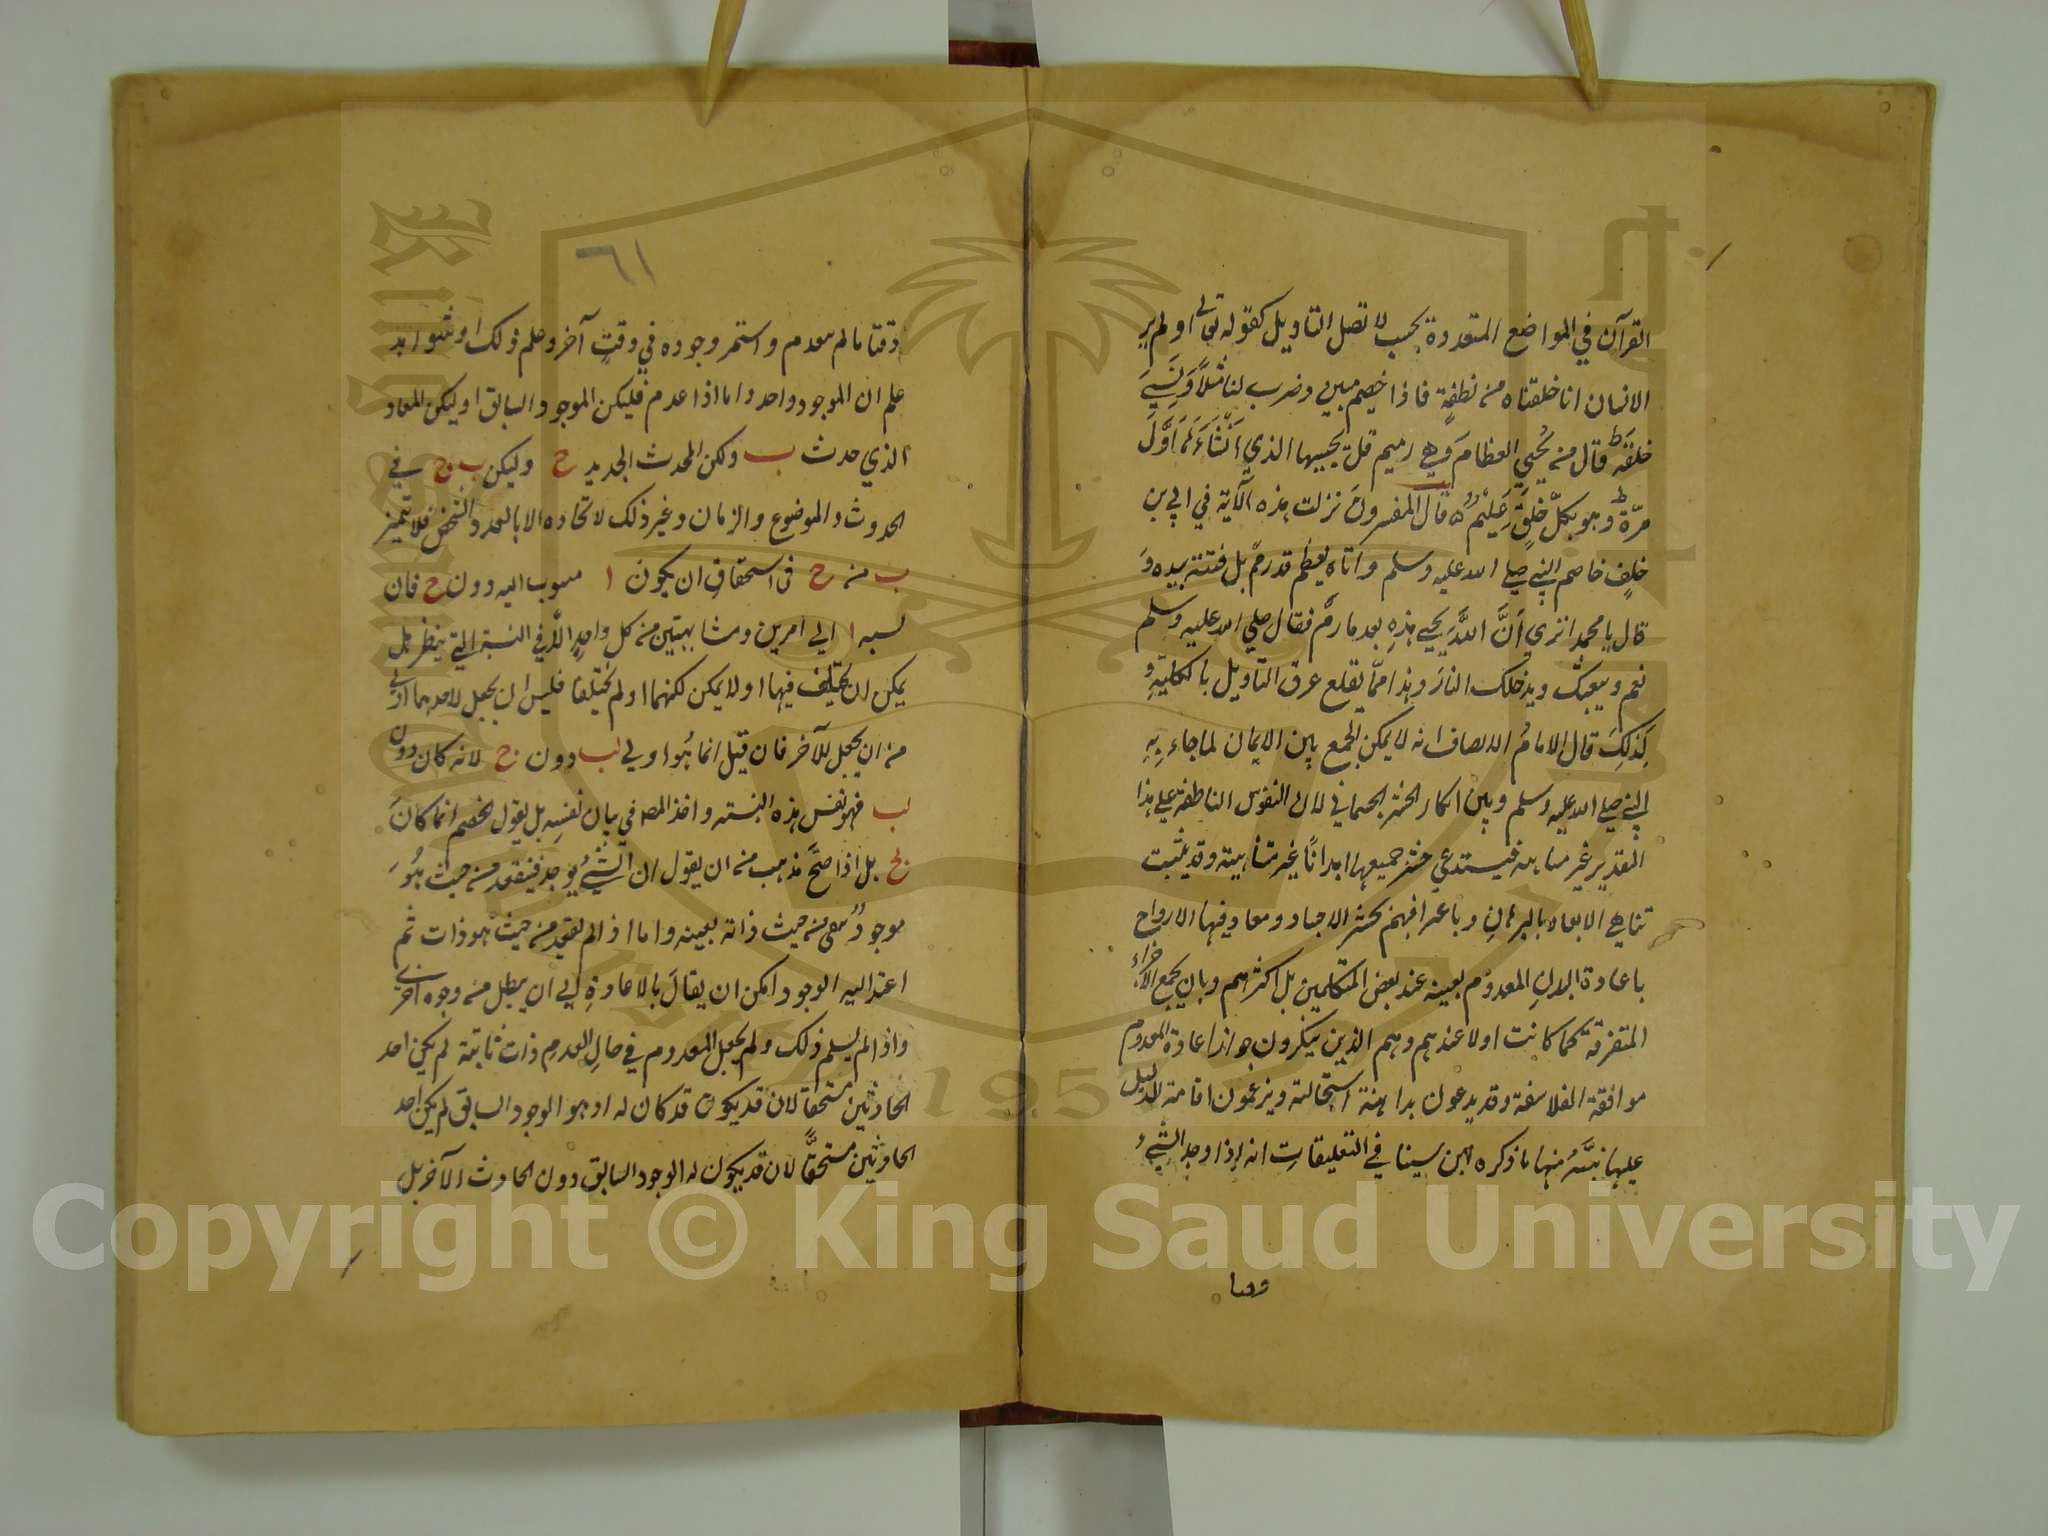 القرآن في المواضع المتعددة بحيث لا تصل التاويل كقوله تعالى اولم ير
الانسان انا خلقناه من نطفةٍ فاذا خصيم مبين وضرب لنا مثلاً وَنَسِيَ
خلقَهٗ ط قال من يُحْيِي العظامَ وَهي رميم قل يحييها الذي اَنْشَاَهَا اَوَّلَ
مرّةٍ ط وهو بكلّ خلقٍ عَلِيْمٌ قال المفسرونَ نزلت هذه الآية في ابي بن
خلفٍ خاصم النبي صلى الله عليه وسلم واتاه بعظم قد رمَّ بل فتته بيده وَ
قال يا محمد اترى اَنَّ اللّٰهَ يحيي هذهِ بعد ما رمَّ فقال صلى الله عليه وسلم
نعم ويبعثك ويدخلك النارَ وهذا ممّا يقلع عرق التاويل بالكليّةِ و
لِذلكَ قال الامامُ الانصاف انه لا يمكن الجمع بين الايمان لما جاء بِهِ
النبي صلى الله عليه وسلم وبين انكار الحشر الجسماني لان النفوس الناطقة على هذا
التقدير غير متناهية فيستدعي حشر جميعها ابدانًا غير متناهية وقد يثبت
تناهي الابعاد بالبرهانِ وباعترافهم بحشر الاجساد ومعاد فيها الارواح
باعادة البدنِ المعدوم بعينه عند بعض المتكلمين بل اكثرهم وبان يجمع الاجزاء
المتفرقة كما كانت اولا عندهم وهم الذين ينكرون جواز اعادة المعدوم
موافقة الفلاسفة وقد يدعون بداهة استحالته ويزعمون اقامة الدليل
عليها منها ما ذكره ابن سينا في التعليقاتِ انه اذا وجد الشيءُ
وقتا
٦١
وقتا ما لم يعدم واستمر وجوده في وقتٍ آخر وعلم ذلك او شواهد
علم ان الموجود واحد واما اذا عدم فليكن الموجود السابق ا وليكن المعاد
الذي حدث ب وليكن المحدث الجديد ج وليكن ب ج في
الحدوث والموضوع والزمان وغير ذلك لا تخاده الا بالعدد فلا يتميز
ب من ج فى استحقاقِ ان يكونَ ا منسوب اليه دون ج فان
نسبه ا الى امرين متشابهين من كل واحدٍ الّا في النسبة التي ينظر هل
يمكن ان يختلف فيها اولا يمكن لكنهما اولم يختلفا فليس ان يجعل لاحدهما اولى
من ان يجعل للآخر فان قيل انما هُوا ولى لب دون ج لانه كان دون
لب فهو نفس هذه النسبته واخذ المط في بيان نفسهِ بل يقول الخصم انما كانَ
لج بل اذا صحَّ مذهب من ان يقول ان الشيءُ يوجد فيفقد من حيث هُوَ
موجودٌ من حيث ذاته بعينه واما اذا لم يفقد من حيث هو ذات ثم
اعيد اليه الوجود امكن ان يقالَ بالاعادةِ الى ان يبطل من وجوه اخرى
واذا لم يسلم ذلك ولم يجعل المعدوم في حالِ العدمِ ذات ثابتة لم يكن احد
الحادثين مستحقا لان قد يكون قد كان له او هو الوجود السابق لم يكن احد
الحادثين مستحقًّا لان قد يكون له الوجود السابق دون الحادث الآخر بل
Copyright © King Saud University
1957